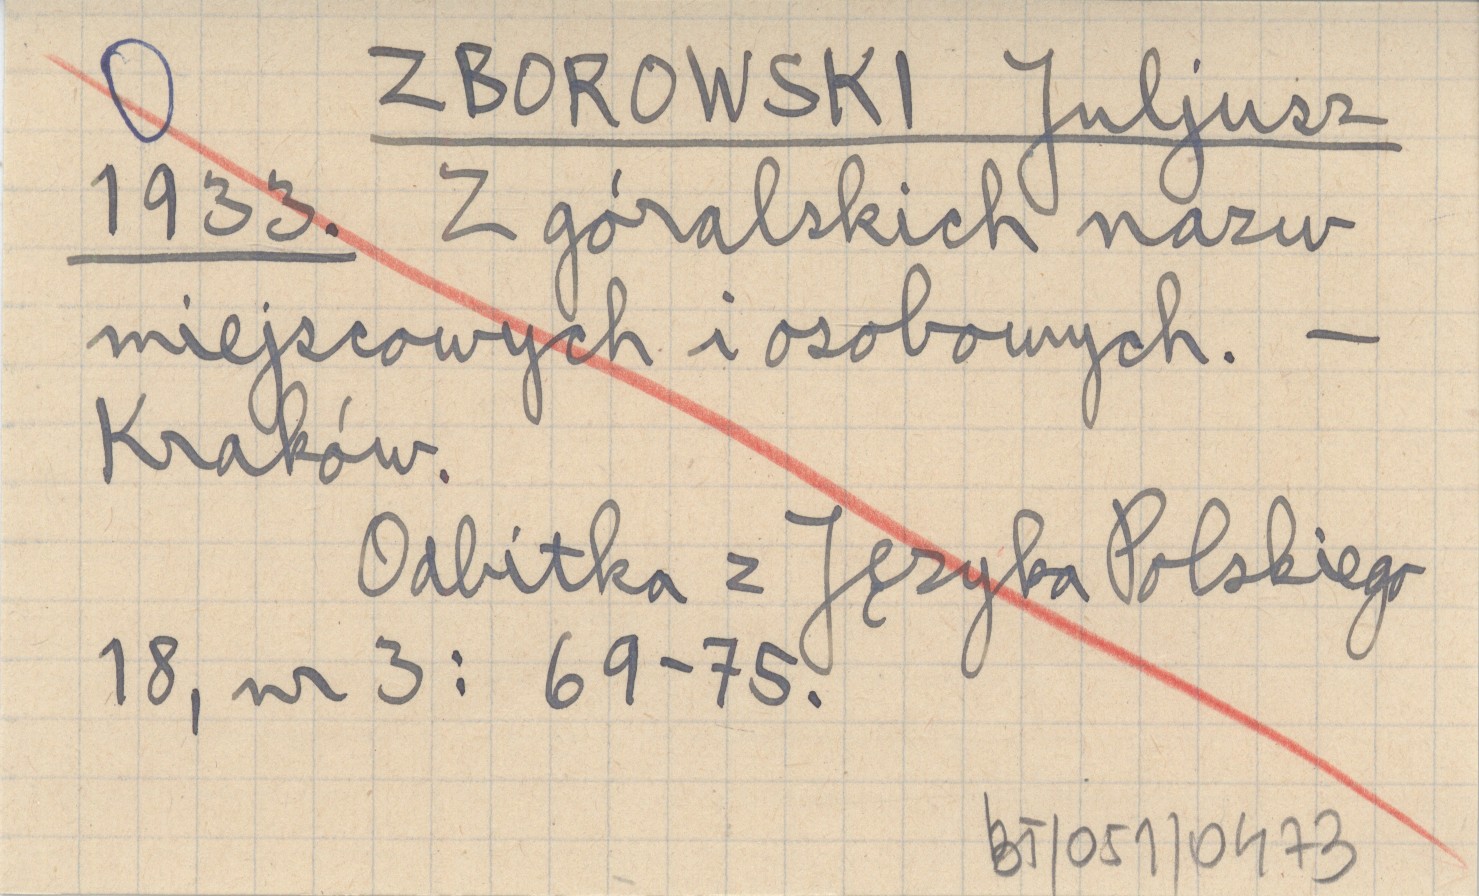 O ZBOROWSKI Juljusz
1933. Z góralskich nazw
miejscowych i osobowych. —
Kraków.
Odbitka z Języka Polskiego
18, nr 3: 69-75.
BT/051/0473